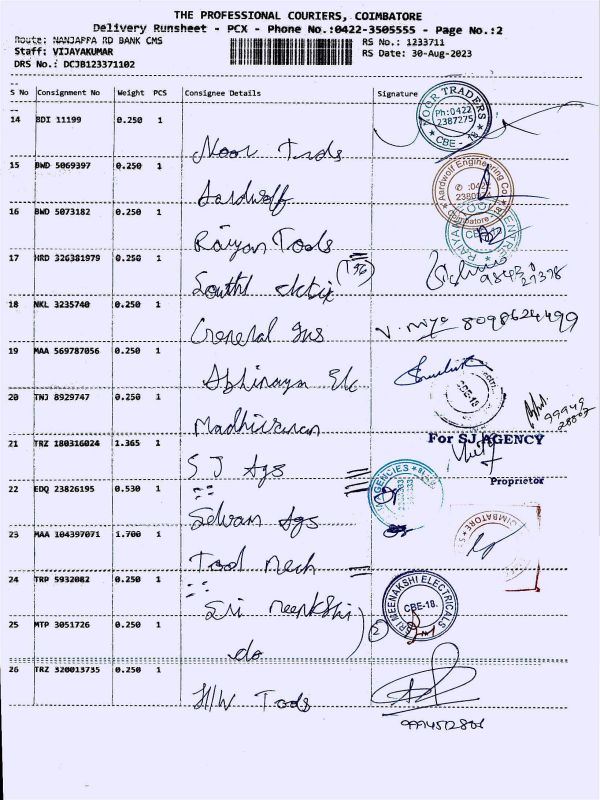 THE PROFESSIONAL COURIERS, COIMBATORE
Delivery Runsheet - PCX - Phone No.:0422-3505555 - Page No.:2
Route: NANJAPPA RD BANK CMS
RS No.: 1233711
Staff: VIJAYAKUMAR
RS Date: 30-Aug-2023
DRS No.: DCJB123371102
S No Consignment No Weight PCS Consignee Details Signature
14 BDI 11199 0.250 1
NOOR TRADERS
Ph:0422
2387275
CBE - 18
Noor Trds
15 BWD 5069397 0.250 1
Aardwolf Engineering Co
Coimbatore
Aardwolf
16 BWD 5073182 0.250 1
Raiyan Tools
17 HRD 326381979 0.250 1
(T96)
18 NKL 3235740 0.250 1
General Ins
8098624499
19 MAA 569787056 0.250 1
Abhinaya Ele
CBE-18
20 TNJ 8929747 0.250 1
Madhivanan
21 TRZ 180316024 1.365 1
For SJ AGENCY
Proprietor
S J Ags
22 EDQ 23826195 0.530 1
AGENCIES
Selvam Ags
23 MAA 104397071 1.700 1
COIMBATORE
Tool Mech
24 TRP 5932082 0.250 1
SRI MEENAKSHI ELECTRICALS
CBE-18.
Sri Meenkshi
25 MTP 3051726 0.250 1
(2)
do
26 TRZ 320013735 0.250 1
H/W Tools